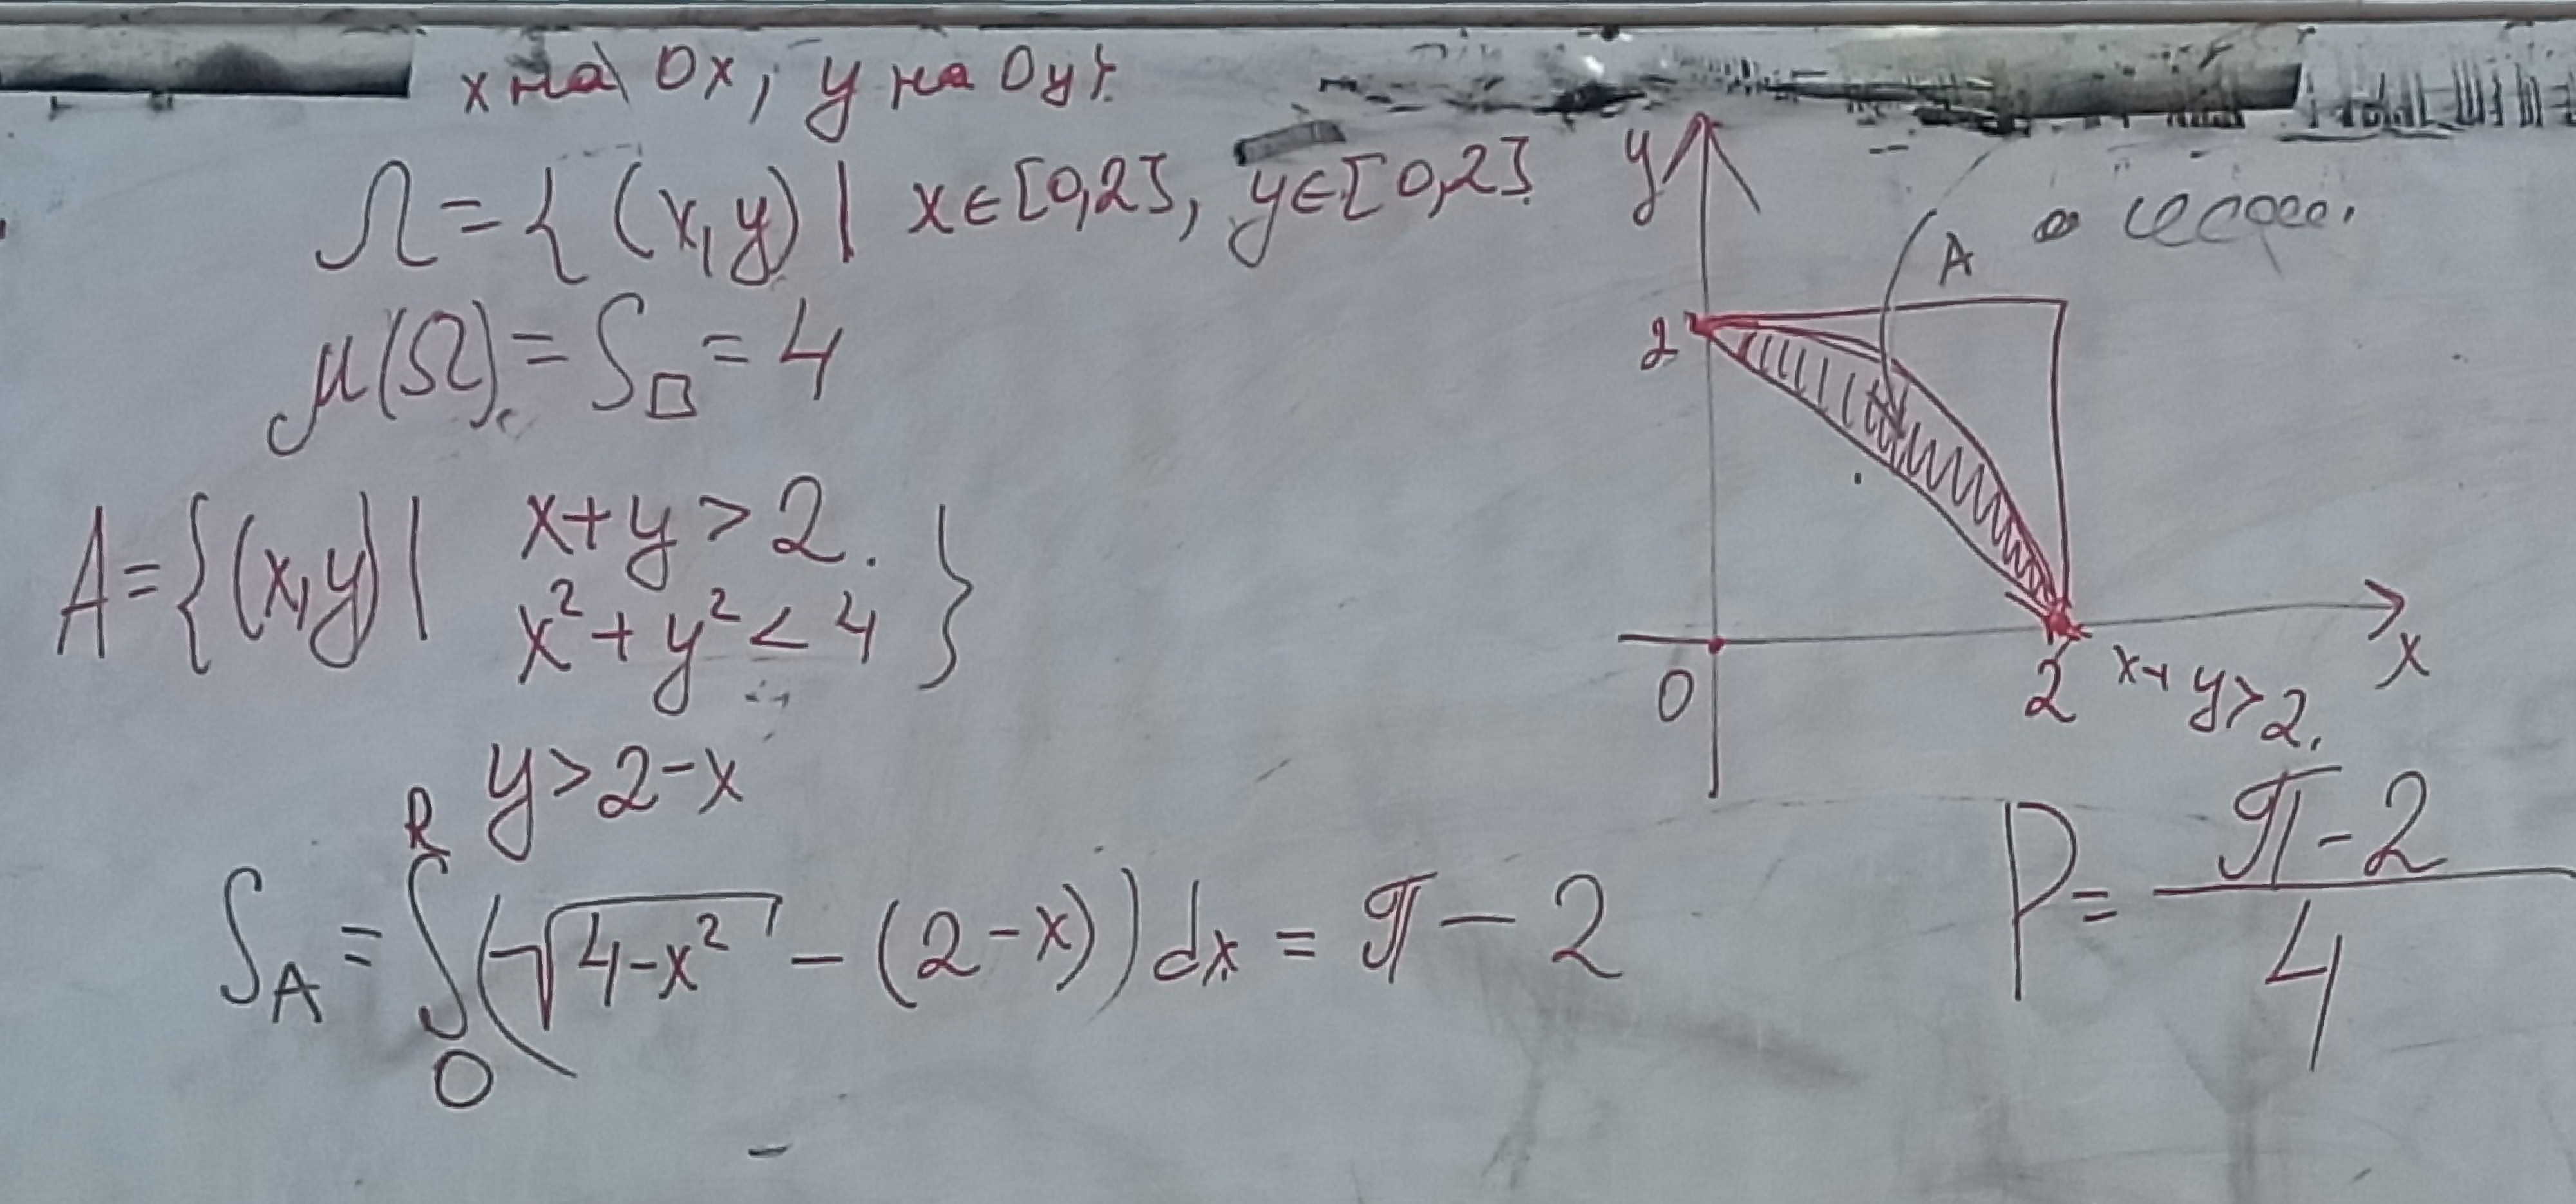 x на 0x, y на 0y}.
Ω = { (x,y) | x∈[0,2], y∈[0,2]
μ(Ω) = S□ = 4
A = { (x,y) | x+y > 2.
x² + y² < 4 }
y > 2-x
S_A = ∫₀ᴿ (√(4-x²) - (2-x)) dx = π - 2
y
A
2
0
2
x
x+y>2.
P = (π-2)/4